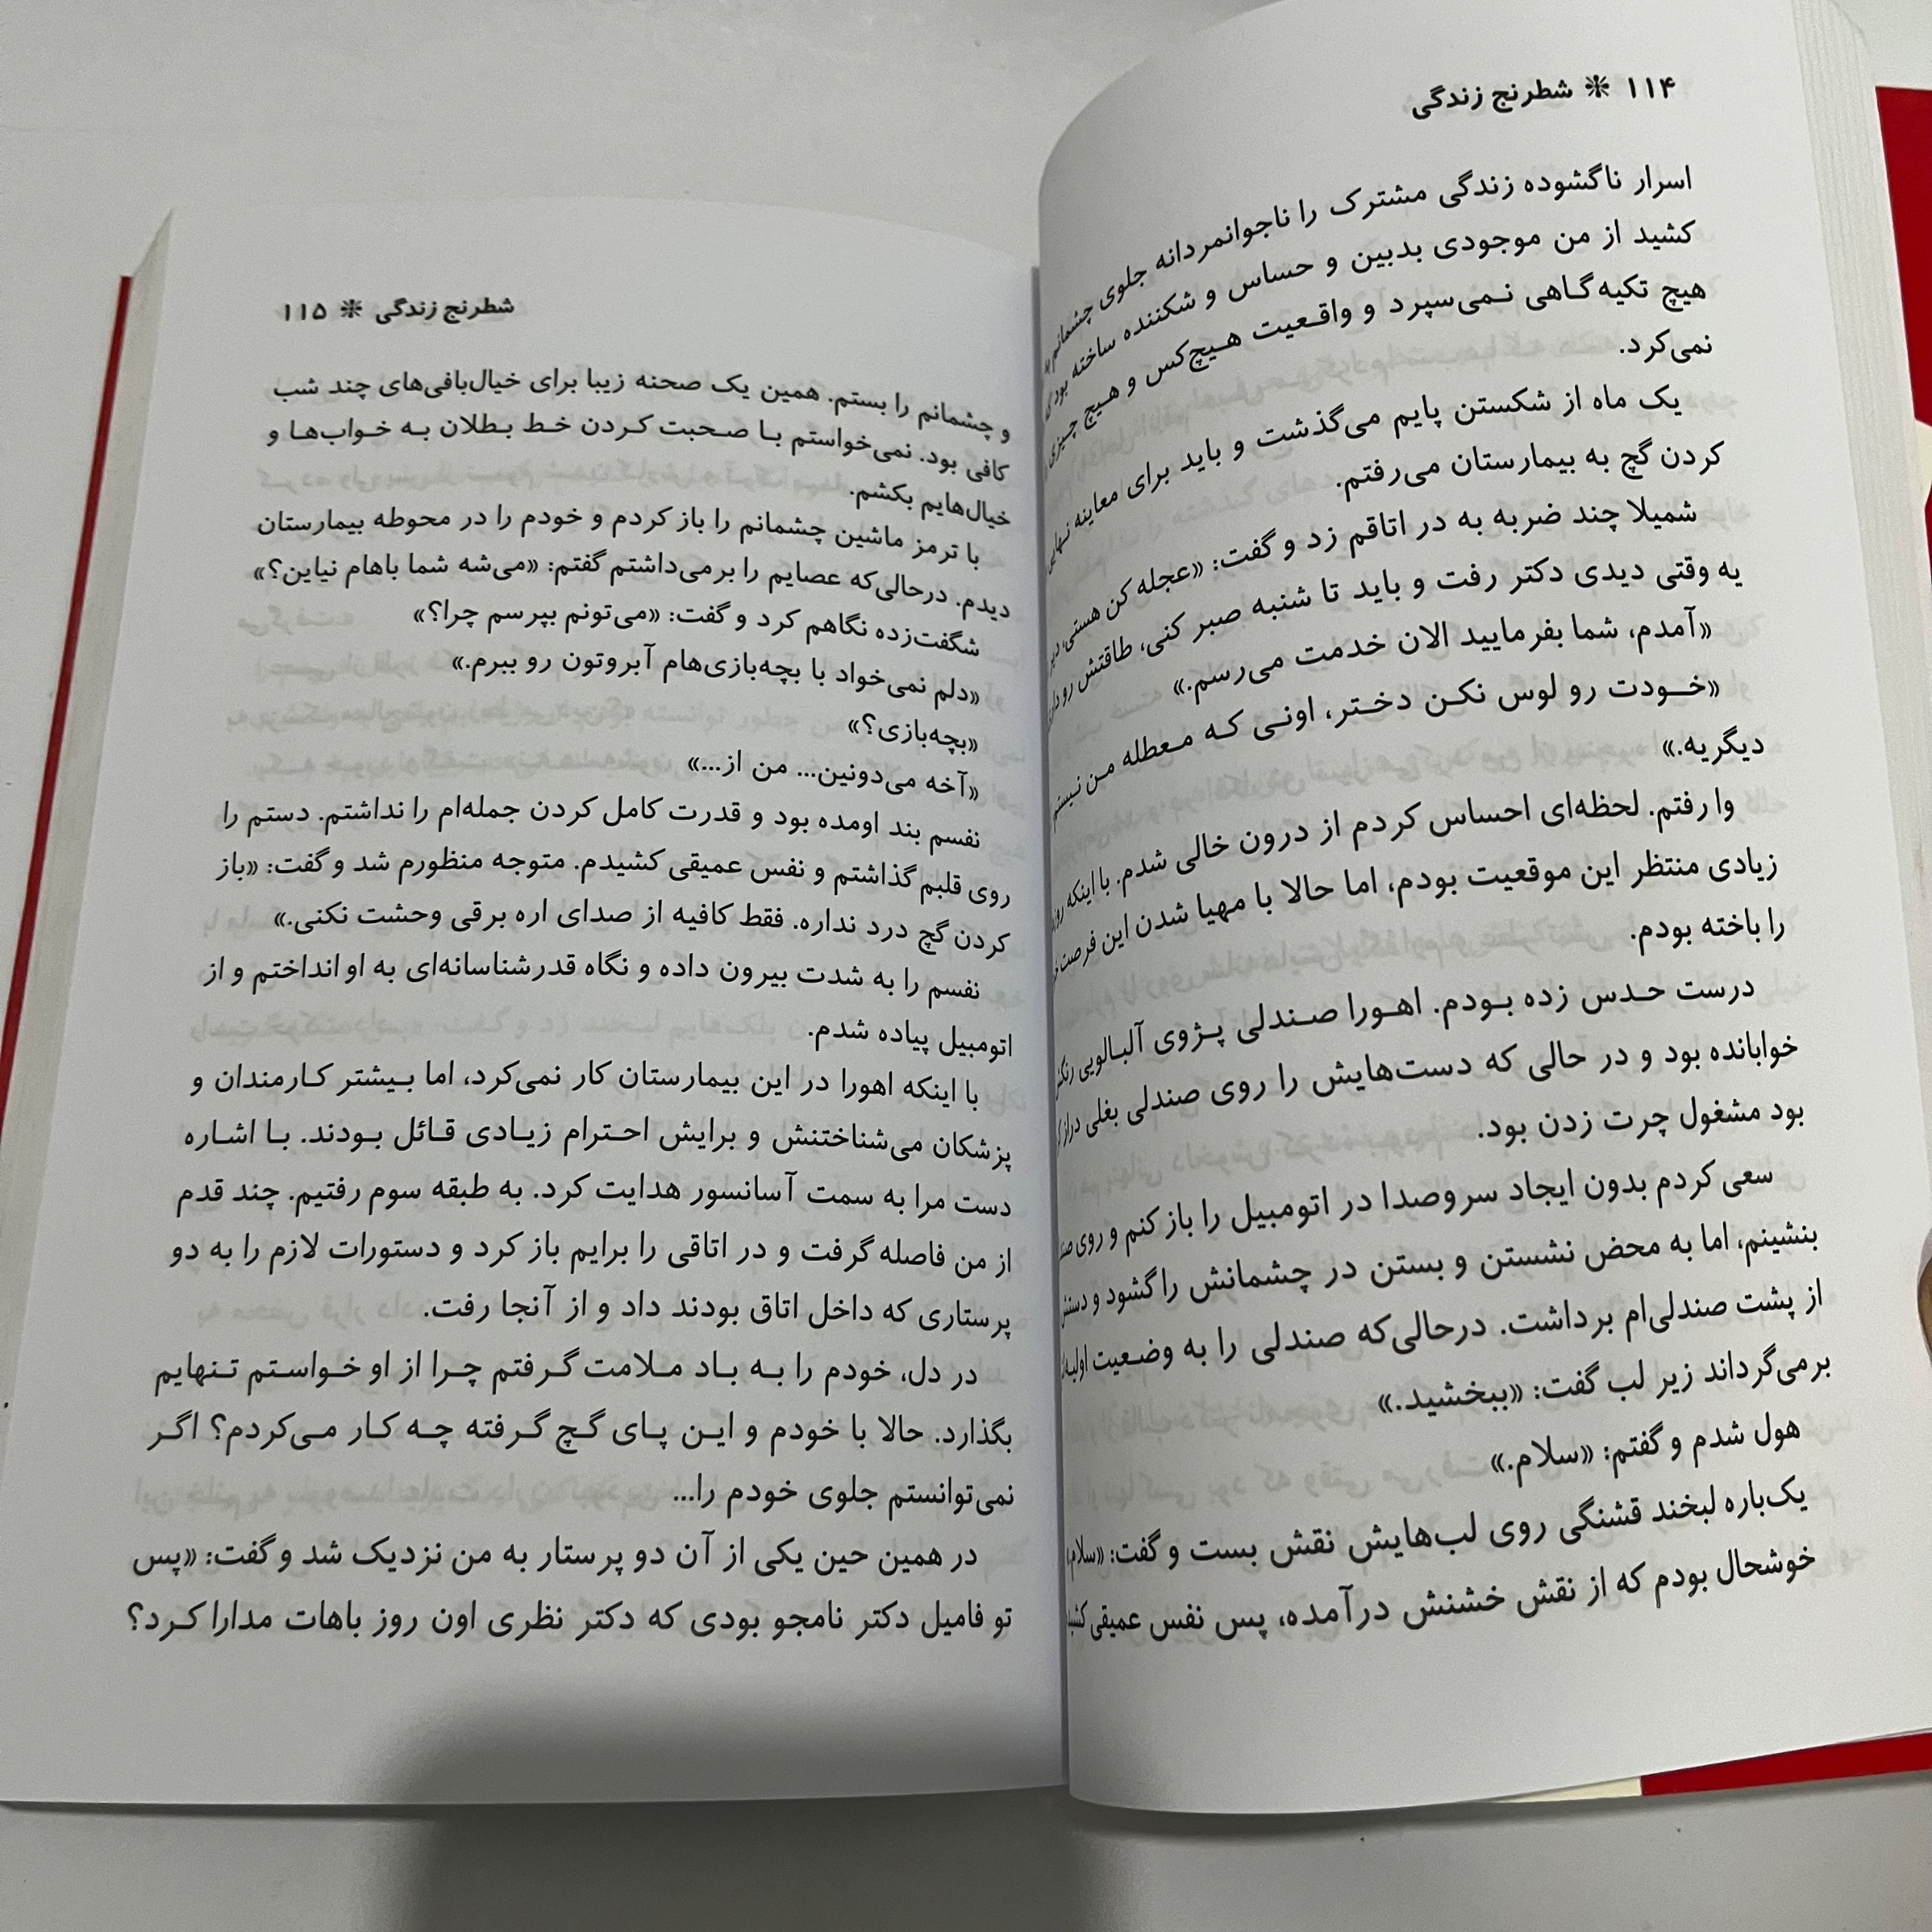 ۱۱۴ ❊ شطرنج زندگی
اسرار ناگشوده زندگی مشترک را ناجوانمردانه جلوی چشمانم
کشید از من موجودی بدبین و حساس و شکننده ساخته بود که
هیچ تکیه‌گاهی نمی‌سپرد و واقعیت هیچ‌کس و هیچ چیزی
نمی‌کرد.
یک ماه از شکستن پایم می‌گذشت و باید برای معاینه نهایی
کردن گچ به بیمارستان می‌رفتم.
شمیلا چند ضربه به در اتاقم زد و گفت: «عجله کن هستی،
یه وقتی دیدی دکتر رفت و باید تا شنبه صبر کنی، طاقتش رو
«آمدم، شما بفرمایید الان خدمت می‌رسم.»
«خودت رو لوس نکن دختر، اونی که معطله من نیستم
دیگریه.»
وا رفتم. لحظه‌ای احساس کردم از درون خالی شدم. با اینکه
زیادی منتظر این موقعیت بودم، اما حالا با مهیا شدن این فرصت
را باخته بودم.
درست حدس زده بودم. اهورا صندلی پژوی آلبالویی
خوابانده بود و در حالی که دست‌هایش را روی صندلی بغلی دراز
بود مشغول چرت زدن بود.
سعی کردم بدون ایجاد سروصدا در اتومبیل را باز کنم و روی
بنشینم، اما به محض نشستن و بستن در چشمانش را گشود و
از پشت صندلی‌ام برداشت. درحالی‌که صندلی را به وضعیت
برمی‌گرداند زیر لب گفت: «ببخشید.»
هول شدم و گفتم: «سلام.»
یک‌باره لبخند قشنگی روی لب‌هایش نقش بست و گفت: «سلام
خوشحال بودم که از نقش خشنش درآمده، پس نفس عمیقی
شطرنج زندگی ❊ ۱۱۵
و چشمانم را بستم. همین یک صحنه زیبا برای خیال‌بافی‌های چند شب
کافی بود. نمی‌خواستم با صحبت کردن خط بطلان به خواب‌ها و
خیال‌هایم بکشم.
با ترمز ماشین چشمانم را باز کردم و خودم را در محوطه بیمارستان
دیدم. درحالی‌که عصایم را برمی‌داشتم گفتم: «می‌شه شما باهام نیاین؟»
شگفت‌زده نگاهم کرد و گفت: «می‌تونم بپرسم چرا؟»
«دلم نمی‌خواد با بچه‌بازی‌هام آبروتون رو ببرم.»
«بچه‌بازی؟»
«آخه می‌دونین... من از...»
نفسم بند اومده بود و قدرت کامل کردن جمله‌ام را نداشتم. دستم را
روی قلبم گذاشتم و نفس عمیقی کشیدم. متوجه منظورم شد و گفت: «باز
کردن گچ درد نداره. فقط کافیه از صدای اره برقی وحشت نکنی.»
نفسم را به شدت بیرون داده و نگاه قدرشناسانه‌ای به او انداختم و از
اتومبیل پیاده شدم.
با اینکه اهورا در این بیمارستان کار نمی‌کرد، اما بیشتر کارمندان و
پزشکان می‌شناختنش و برایش احترام زیادی قائل بودند. با اشاره
دست مرا به سمت آسانسور هدایت کرد. به طبقه سوم رفتیم. چند قدم
از من فاصله گرفت و در اتاقی را برایم باز کرد و دستورات لازم را به دو
پرستاری که داخل اتاق بودند داد و از آنجا رفت.
در دل، خودم را به باد ملامت گرفتم چرا از او خواستم تنهایم
بگذارد. حالا با خودم و این پای گچ گرفته چه کار می‌کردم؟ اگر
نمی‌توانستم جلوی خودم را...
در همین حین یکی از آن دو پرستار به من نزدیک شد و گفت: «پس
تو فامیل دکتر نامجو بودی که دکتر نظری اون روز باهات مدارا کرد؟